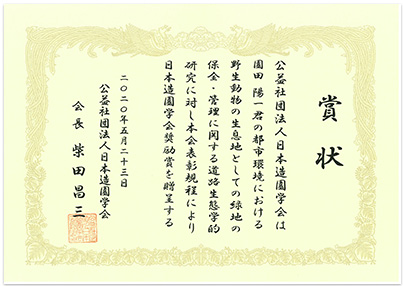 賞状
公益社団法人日本造園学会は
園田 陽一君の都市環境における
野生動物の生息地としての緑地の
保全・管理に関する道路生態学的
研究に対し本会表彰規程により
日本造園学会奨励賞を贈呈する
二〇二〇年五月二十三日
公益社団法人日本造園学会
会長 柴田 昌三